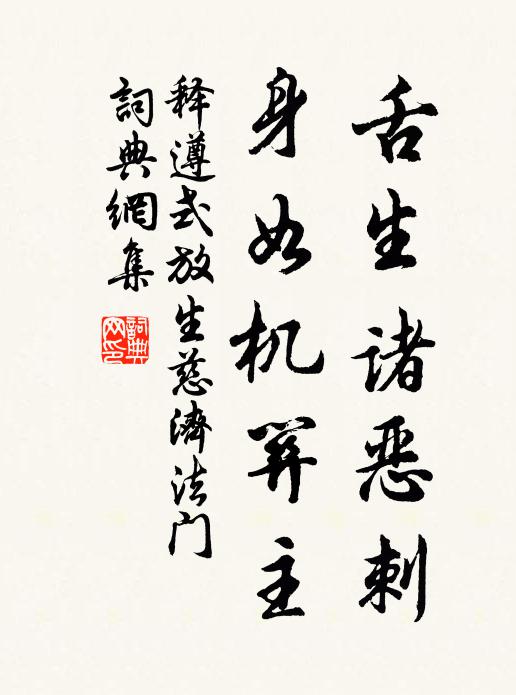 舌生诸恶刺
身如机关主
释遵式放生慈濟法门
詞典網集
詞典网印